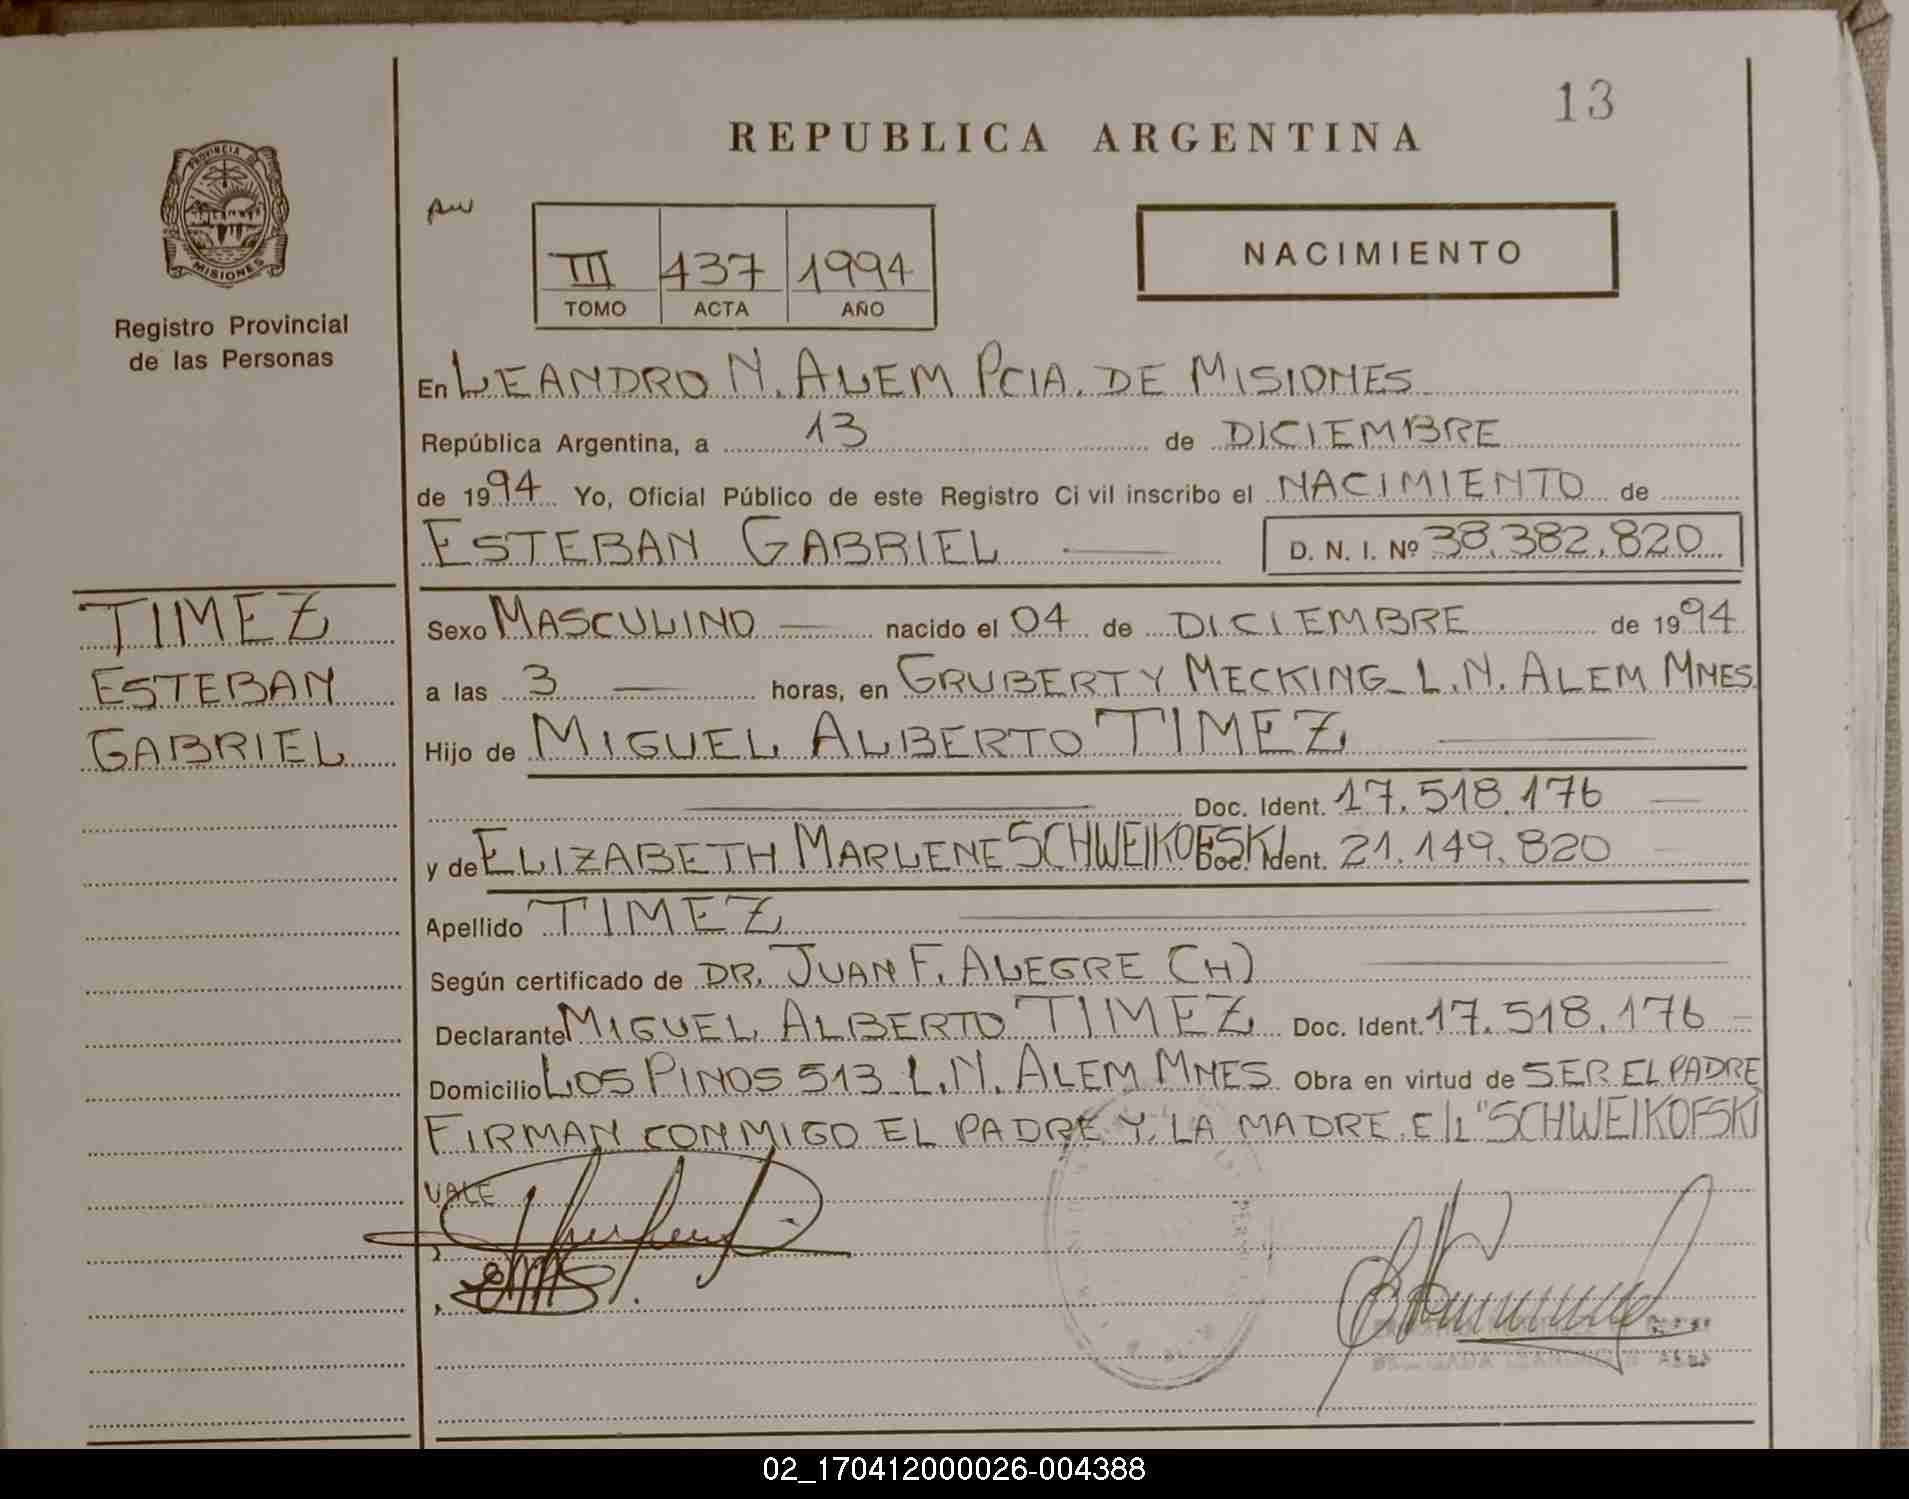 13
REPUBLICA ARGENTINA
PROVINCIA DE
MISIONES
Registro Provincial
de las Personas
III 437 1994
TOMO ACTA AÑO
NACIMIENTO
En LEANDRO N. ALEM PCIA. DE MISIONES
República Argentina, a 13 de DICIEMBRE
de 1994 Yo, Oficial Público de este Registro Ci vil inscribo el NACIMIENTO de
ESTEBAN GABRIEL D. N. I. Nº 38.382.820
TIMEZ
ESTEBAN
GABRIEL
Sexo MASCULINO nacido el 04 de DICIEMBRE de 1994
a las 3 horas, en GRUBERT Y MECKING L.N. ALEM MNES
Hijo de MIGUEL ALBERTO TIMEZ
Doc. Ident. 17.518.176
y de ELIZABETH MARLENE SCHWEIKOFSKI Doc. Ident. 21.149.820
Apellido TIMEZ
Según certificado de DR. JUAN F. ALEGRE (H)
Declarante MIGUEL ALBERTO TIMEZ Doc. Ident. 17.518.176
Domicilio LOS PINOS 513 L.N. ALEM MNES Obra en virtud de SER EL PADRE
FIRMAN CONMIGO EL PADRE Y LA MADRE. E/L "SCHWEIKOFSKI
VALE
02_170412000026-004388